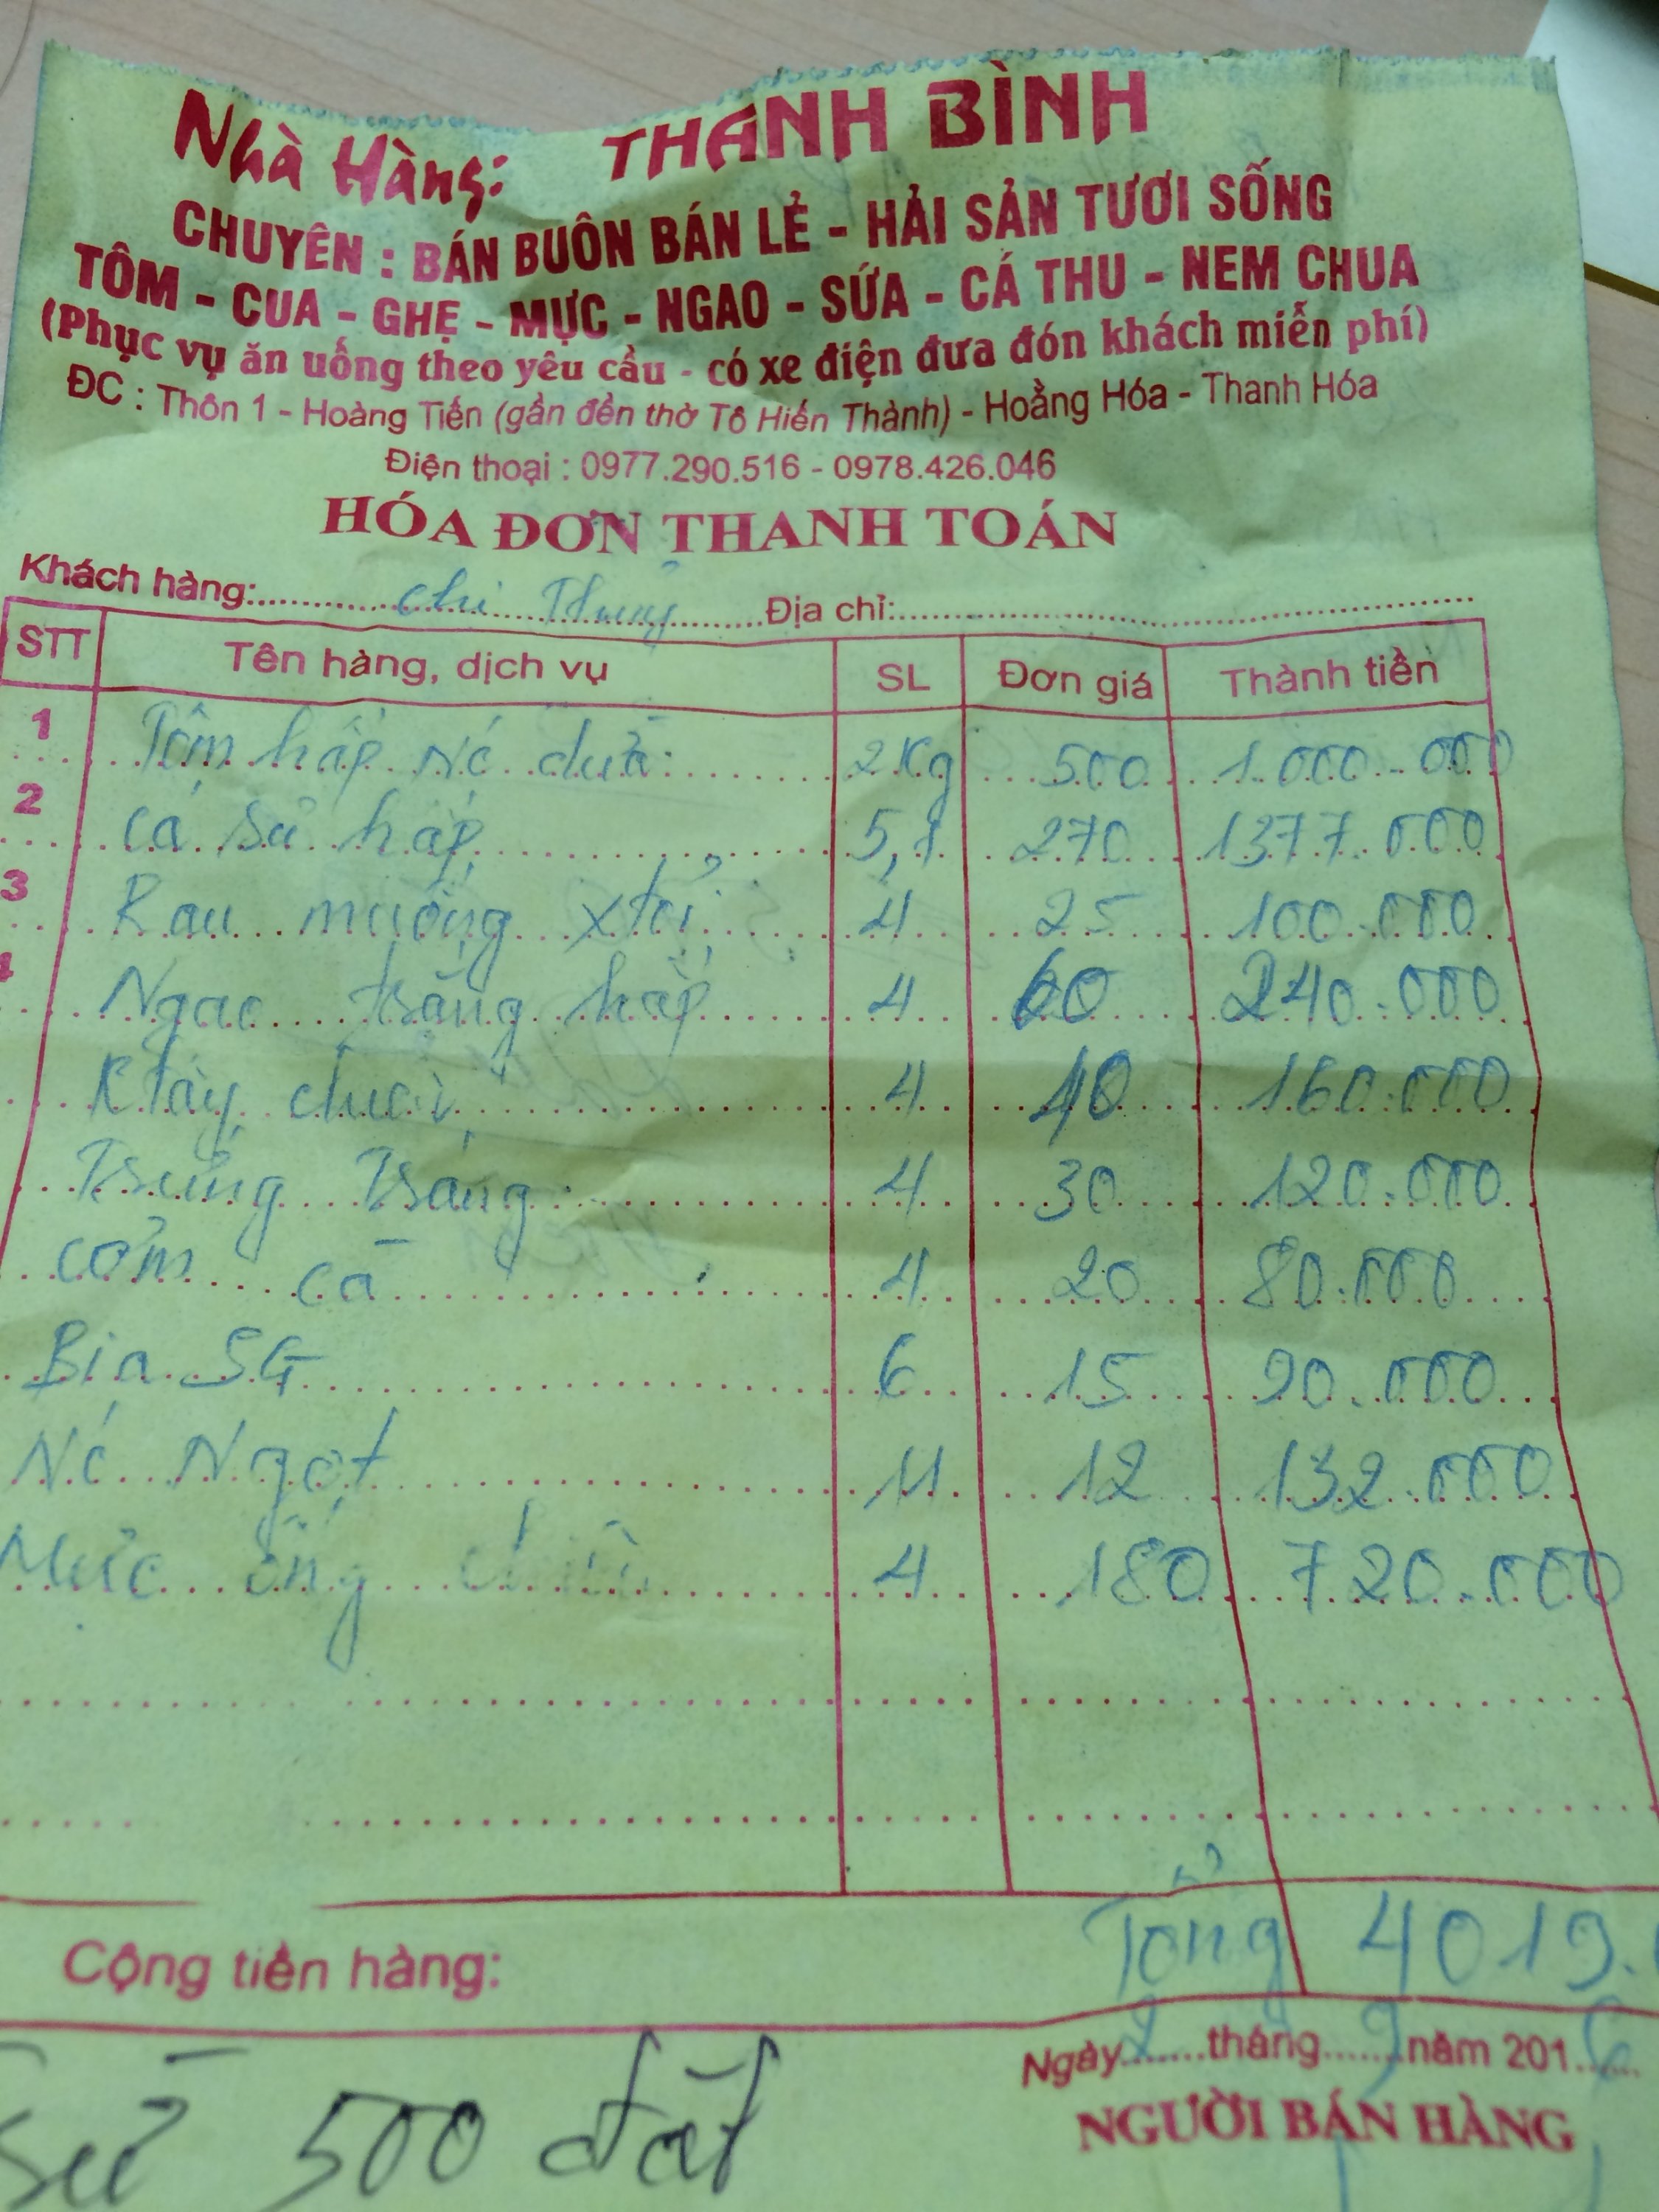 Nhà Hàng: THANH BÌNH
CHUYÊN : BÁN BUÔN BÁN LẺ - HẢI SẢN TƯƠI SỐNG
TÔM - CUA - GHẸ - MỰC - NGAO - SỨA - CÁ THU - NEM CHUA
(Phục vụ ăn uống theo yêu cầu - có xe điện đưa đón khách miễn phí)
ĐC : Thôn 1 - Hoàng Tiến (gần đền thờ Tô Hiến Thành) - Hoằng Hóa - Thanh Hóa
Điện thoại : 0977.290.516 - 0978.426.046
HÓA ĐƠN THANH TOÁN
Khách hàng: chị Thủy Địa chỉ:
STT Tên hàng, dịch vụ SL Đơn giá Thành tiền
1 Tôm hấp Nć dừa 2Kg 500 1.000.000
2 Cá sủ hấp 5,1 270 1377.000
3 Rau muống x tỏi 4 25 100.000
4 Ngao trắng hấp 4 60 240.000
K tây chuối 4 40 160.000
Trứng Tráng 4 30 120.000
Cơm cá 4 20 80.000
Bia SG 6 15 90.000
Nć Ngọt 11 12 132.000
Mực ống 4 180 720.000
Cộng tiền hàng: Tổng 4019.
Ngày 2 tháng 9 năm 2016
NGƯỜI BÁN HÀNG
500 đặt